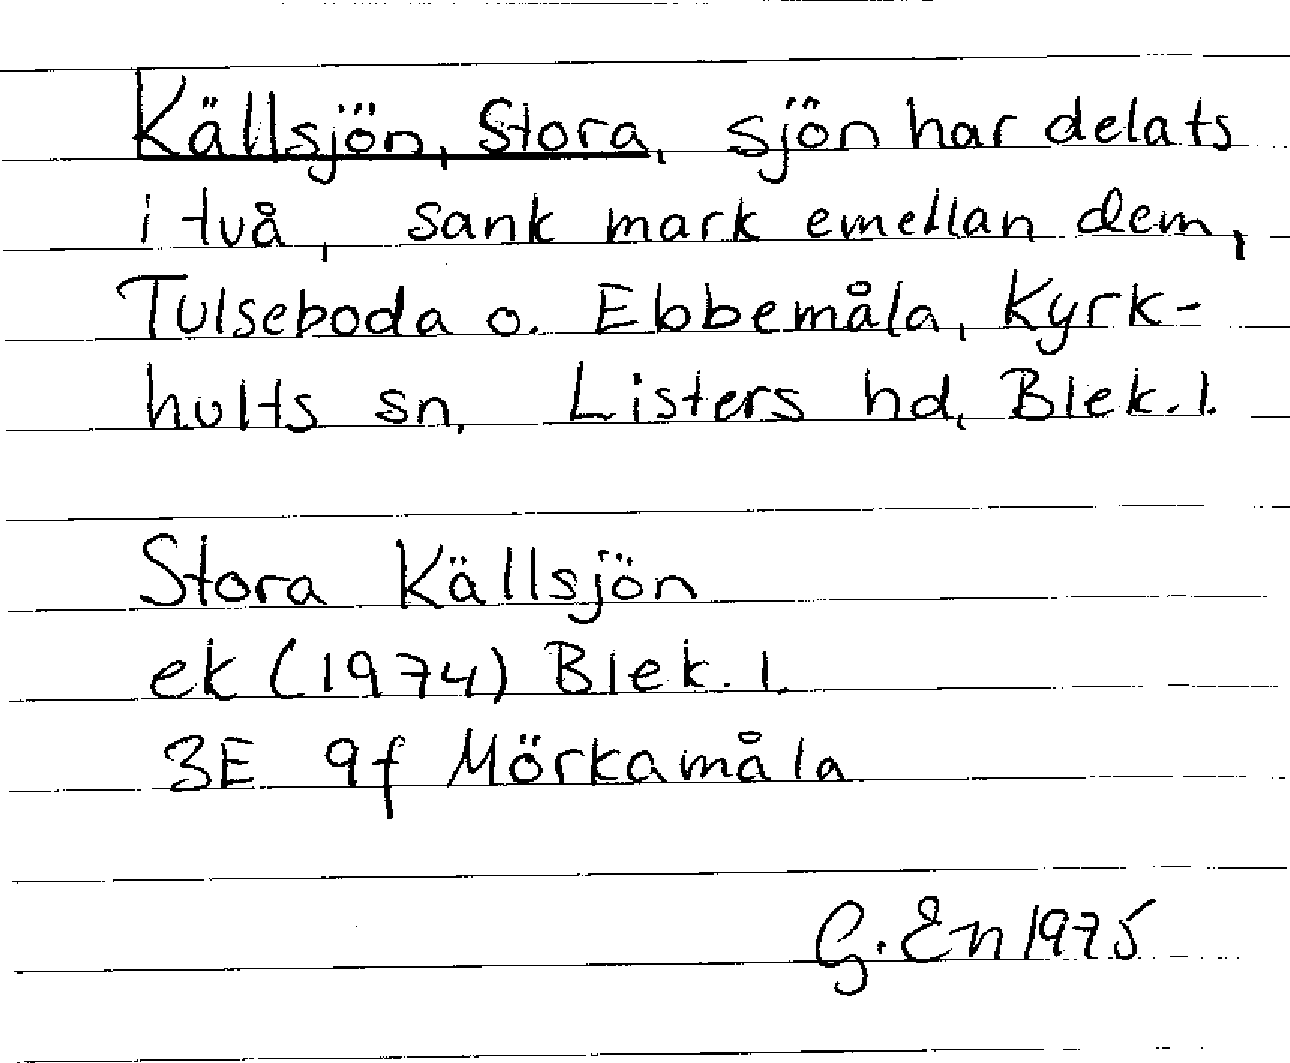 Källsjön, Stora, sjön har delats
i två, sank mark emellan dem,
Tulseboda o. Ebbemåla, Kyrk-
hults sn, Listers hd, Blek. l.
Stora Källsjön
ek (1974) Blek. l.
3E 9f Mörkamåla
G. En 1975